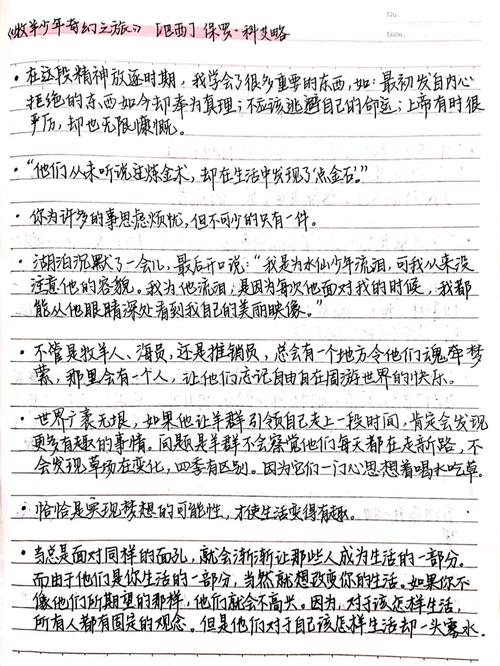 No.
Date.
《牧羊少年奇幻之旅》【巴西】保罗·科艾略
·在这段精神放逐时期，我学会了很多重要的东西，如：最初发自内心
拒绝的东西如今却奉为真理；不应该逃避自己的命运；上帝有时很
严厉，却也无限慷慨。
·“他们从未听说过炼金术，却在生活中发现了‘点金石’。”
·你为许多的事思虑烦忧，但不可少的只有一件。
·湖泊沉默了一会儿，最后开口说：“我是为水仙少年流泪，可我从来没
注意他的容貌。我为他流泪，是因为每次他面对我的时候，我都
能从他眼睛深处看到我自己的美丽映像。”
·不管是牧羊人、海员，还是推销员，总会有一个地方令他们魂牵梦
萦，那里会有一个人，让他们忘记自由自在周游世界的快乐。
·世界广袤无垠，如果他让羊群引领自己走上一段时间，肯定会发现
更多有趣的事情。问题是羊群不会察觉他们每天都在走新路，不
会发现草场在变化，四季有区别。因为它们一门心思想着喝水吃草。
·恰恰是实现梦想的可能性，才使生活变得有趣。
·当总是面对同样的面孔，就会渐渐让那些人成为生活的一部分。
而由于他们是你生活的一部分，当然就想改变你的生活。如果你不
像他们所期望的那样，他们就会不高兴。因为，对于该怎样生活，
所有人都有固定的观念。但是他们对于自己该怎样生活却一头雾水。